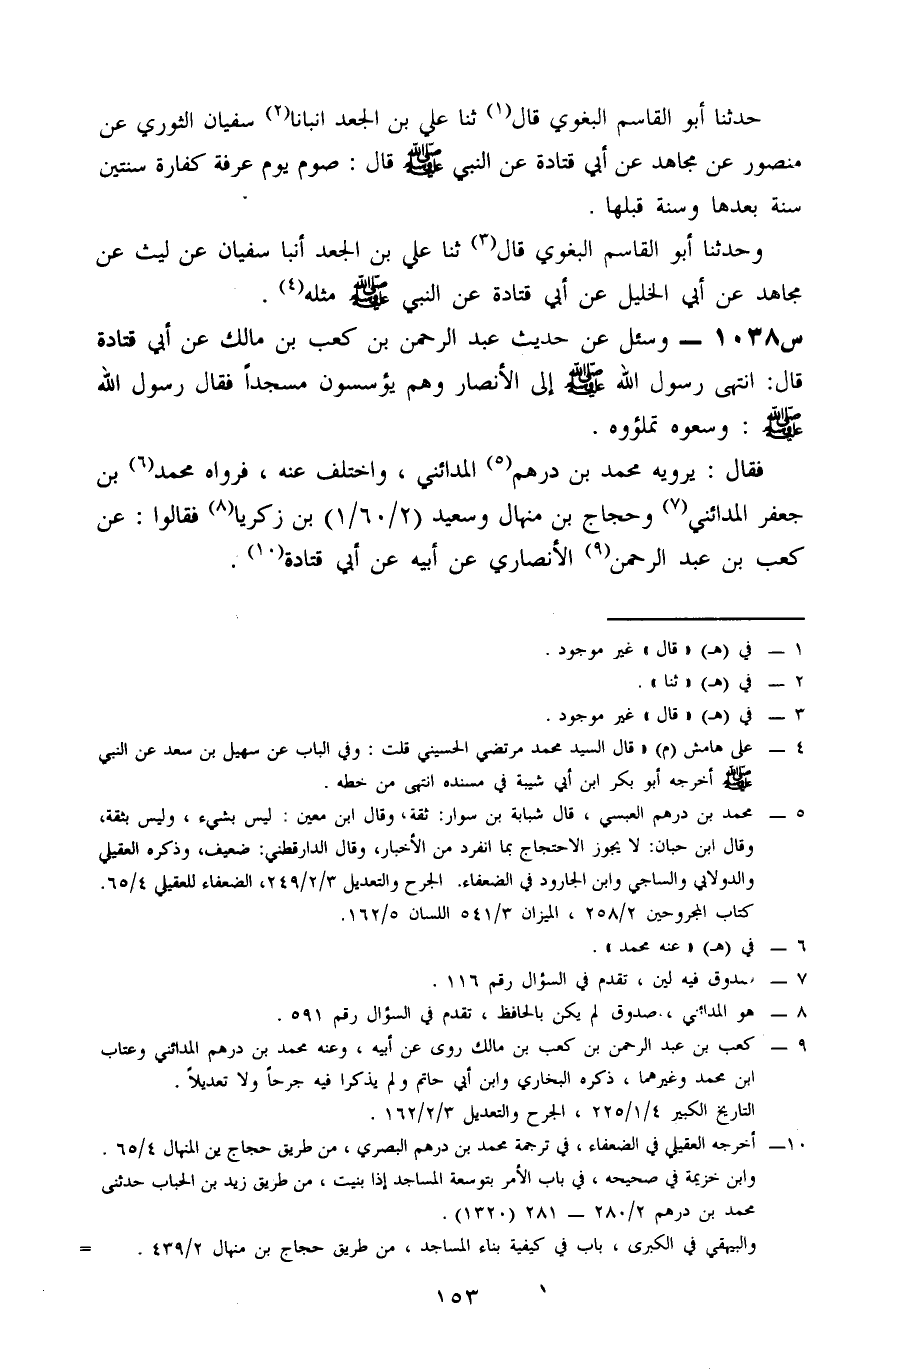 حدثنا أبو القاسم البغوي قال(١) ثنا علي بن الجعد انبانا(٢) سفيان الثوري عن
منصور عن مجاهد عن أبي قتادة عن النبي ﷺ قال : صوم يوم عرفة كفارة سنتين
سنة بعدها وسنة قبلها .
وحدثنا أبو القاسم البغوي قال(٣) ثنا علي بن الجعد أنبا سفيان عن ليث عن
مجاهد عن أبي الخليل عن أبي قتادة عن النبي ﷺ مثله(٤) .
س١٠٣٨ – وسئل عن حديث عبد الرحمن بن كعب بن مالك عن أبي قتادة
قال: انتهى رسول الله ﷺ إلى الأنصار وهم يؤسسون مسجداً فقال رسول الله
ﷺ : وسعوه تملؤوه .
فقال : يرويه محمد بن درهم(٥) المدائني ، واختلف عنه ، فرواه محمد(٦) بن
جعفر المدائني(٧) وحجاج بن منهال وسعيد (١/٦٠/٢) بن زكريا(٨) فقالوا : عن
كعب بن عبد الرحمن(٩) الأنصاري عن أبيه عن أبي قتادة(١٠) .
١ – في (هـ) « قال » غير موجود .
٢ – في (هـ) « ثنا » .
٣ – في (هـ) « قال » غير موجود .
٤ – على هامش (م) « قال السيد محمد مرتضي الحسيني قلت : وفي الباب عن سهيل بن سعد عن النبي
ﷺ أخرجه أبو بكر ابن أبي شيبة في مسنده انتهى من خطه .
٥ – محمد بن درهم العبسي ، قال شبابة بن سوار: ثقة، وقال ابن معين : ليس بشيء ، وليس بثقة،
وقال ابن حبان: لا يجوز الاحتجاج بما انفرد من الأخبار، وقال الدارقطني: ضعيف، وذكره العقيلي
والدولابي والساجي وابن الجارود في الضعفاء. الجرح والتعديل ٢٤٩/٢/٣، الضعفاء للعقيلي ٦٥/٤.
كتاب المجروحين ٢٥٨/٢ ، الميزان ٥٤١/٣ اللسان ١٦٢/٥.
٦ – في (هـ) « عنه محمد » .
٧ – صدوق فيه لين ، تقدم في السؤال رقم ١١٦ .
٨ – هو المدائني ، صدوق لم يكن بالحافظ ، تقدم في السؤال رقم ٥٩١ .
٩ – كعب بن عبد الرحمن بن كعب بن مالك روى عن أبيه ، وعنه محمد بن درهم المدائني وعتاب
ابن محمد وغيرهما ، ذكره البخاري وابن أبي حاتم ولم يذكرا فيه جرحاً ولا تعديلاً .
التاريخ الكبير ٢٢٥/١/٤ ، الجرح والتعديل ١٦٢/٢/٣ .
١٠– أخرجه العقيلي في الضعفاء ، في ترجمة محمد بن درهم البصري ، من طريق حجاج بن المنهال ٦٥/٤ .
وابن خزيمة في صحيحه ، في باب الأمر بتوسعة المساجد إذا بنيت ، من طريق زيد بن الحباب حدثنى
محمد بن درهم ٢٨٠/٢ – ٢٨١ (١٣٢٠) .
والبيهقي في الكبرى ، باب في كيفية بناء المساجد ، من طريق حجاج بن منهال ٤٣٩/٢ . =
١٥٣